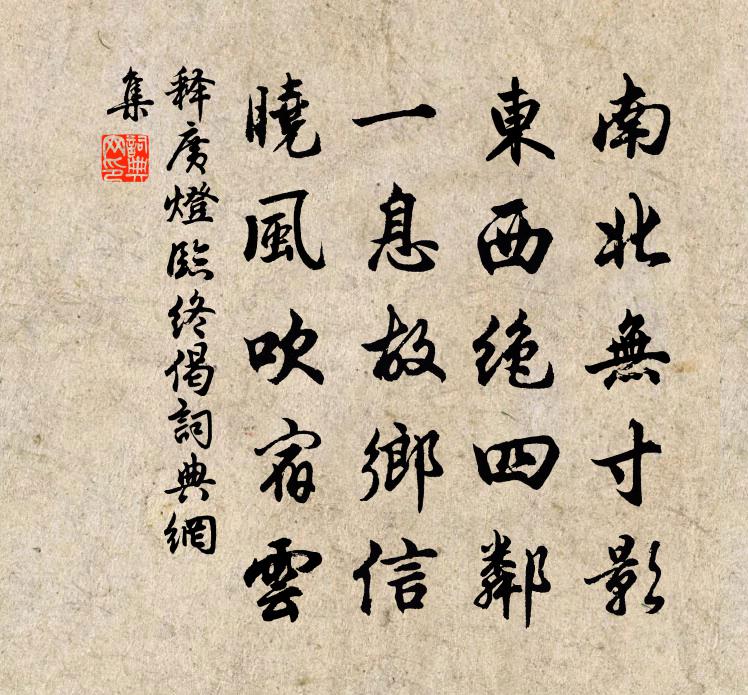 南北無寸影
東西絶四鄰
一息故鄉信
曉風吹宿雲
释廣燈臨終偈詞典網
集
詞典
网印